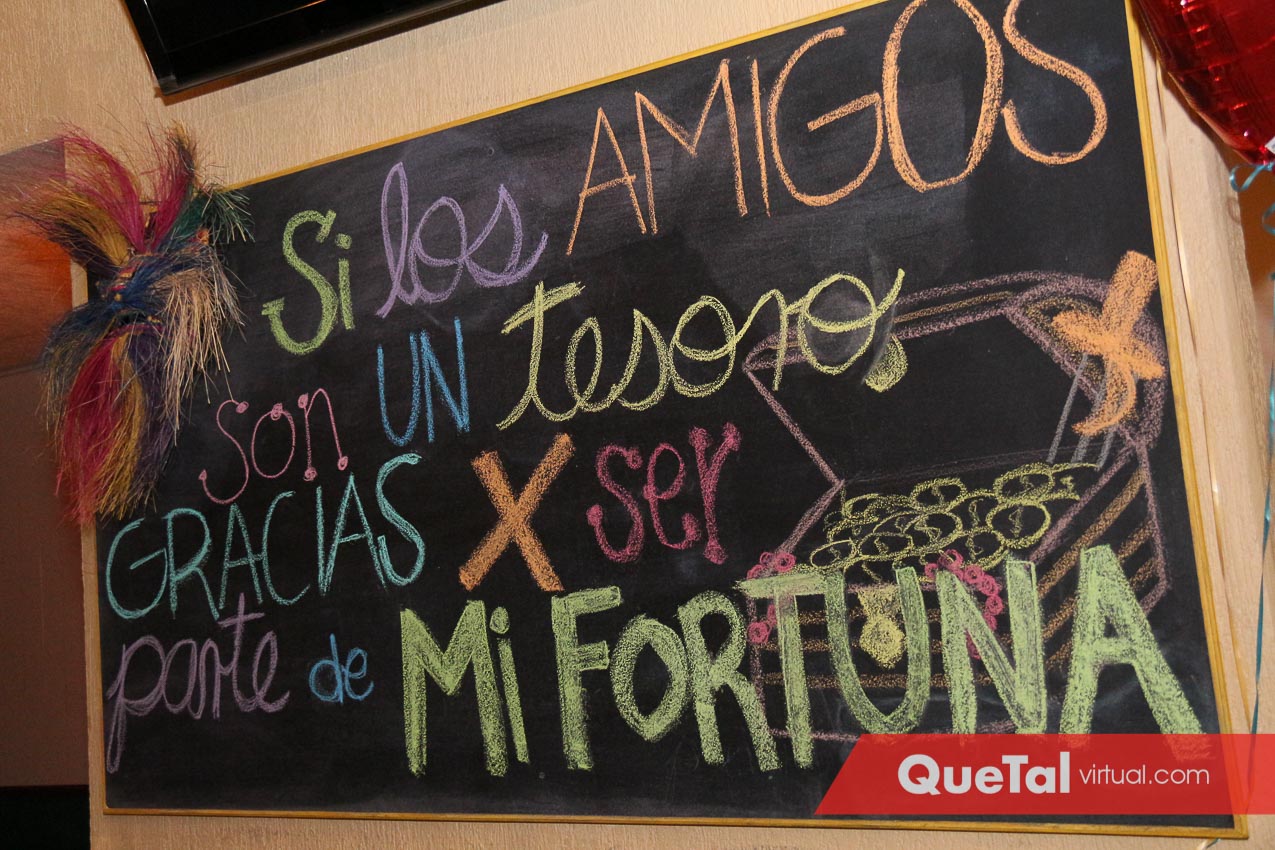 Si los AMIGOS
son UN tesoro,
GRACIAS X ser
parte de Mi FORTUNA
QueTal virtual.com